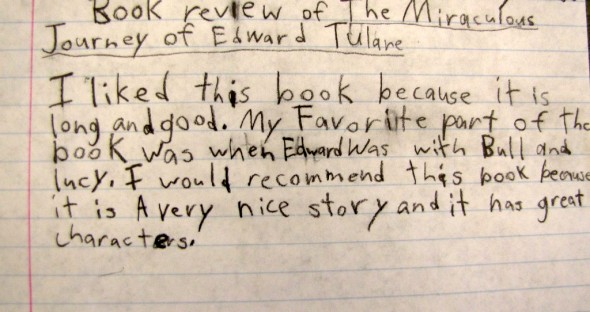 Book review of The Miraculous
Journey of Edward Tulane
I liked this book because it is
long and good. My Favorite part of the
book was when Edward Was with Bull and
lucy. I would recommend this book because
it is A very nice story and it has great
characters.